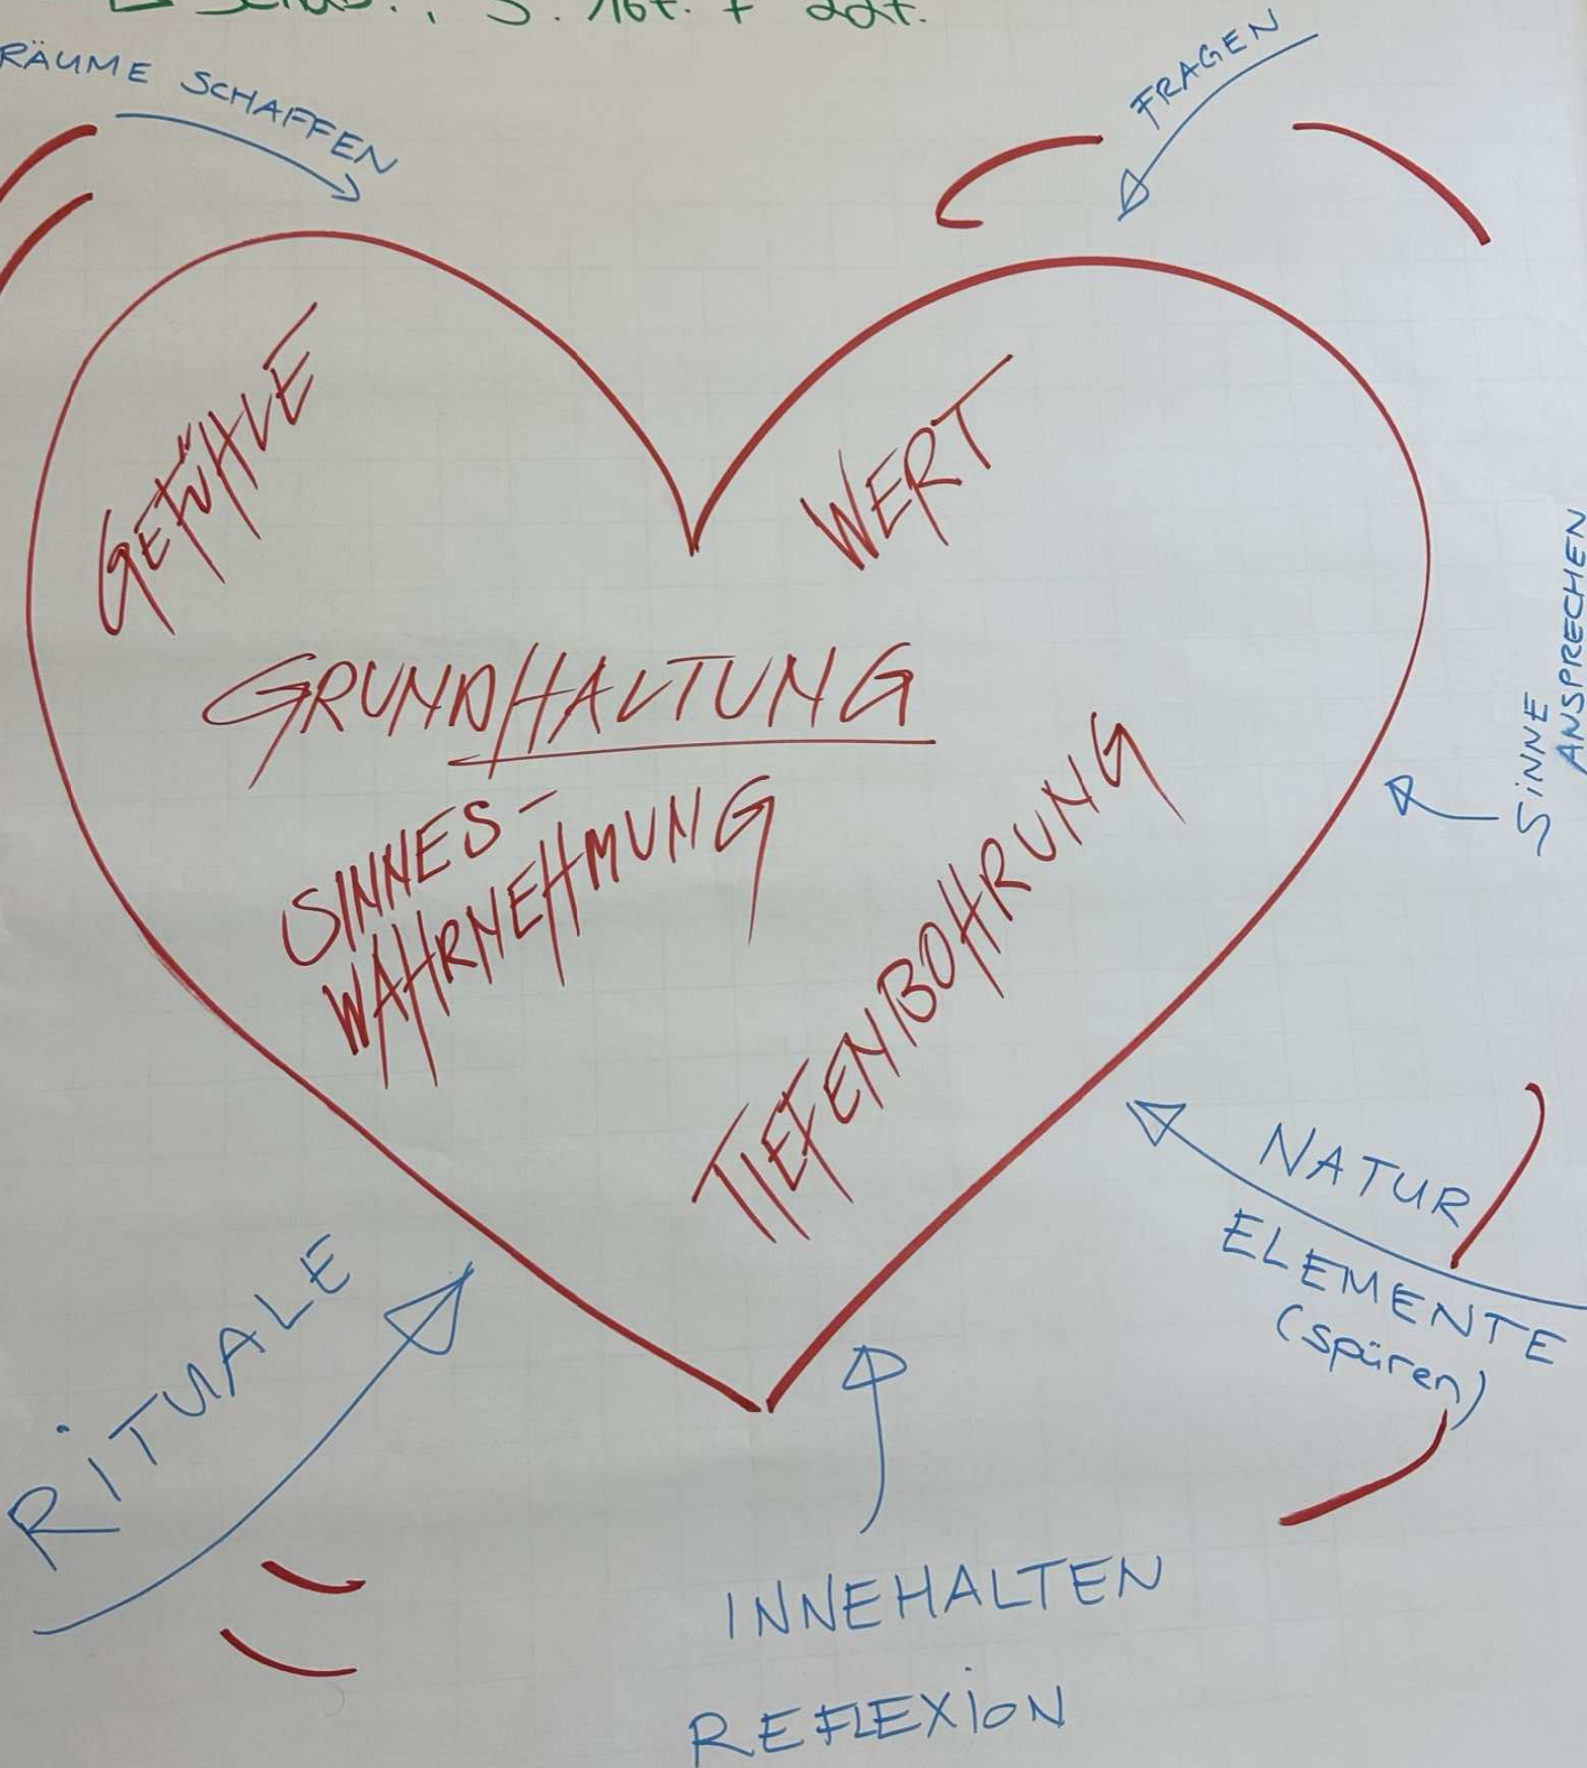 S. 16f. + 22f.
RÄUME SCHAFFEN
FRAGEN
GEFÜHLE
WERT
GRUNDHALTUNG
SINNES-
WAHRNEHMUNG
TIEFENBOHRUNG
SINNE
ANSPRECHEN
NATUR
ELEMENTE
(spüren)
RITUALE
INNEHALTEN
REFLEXION